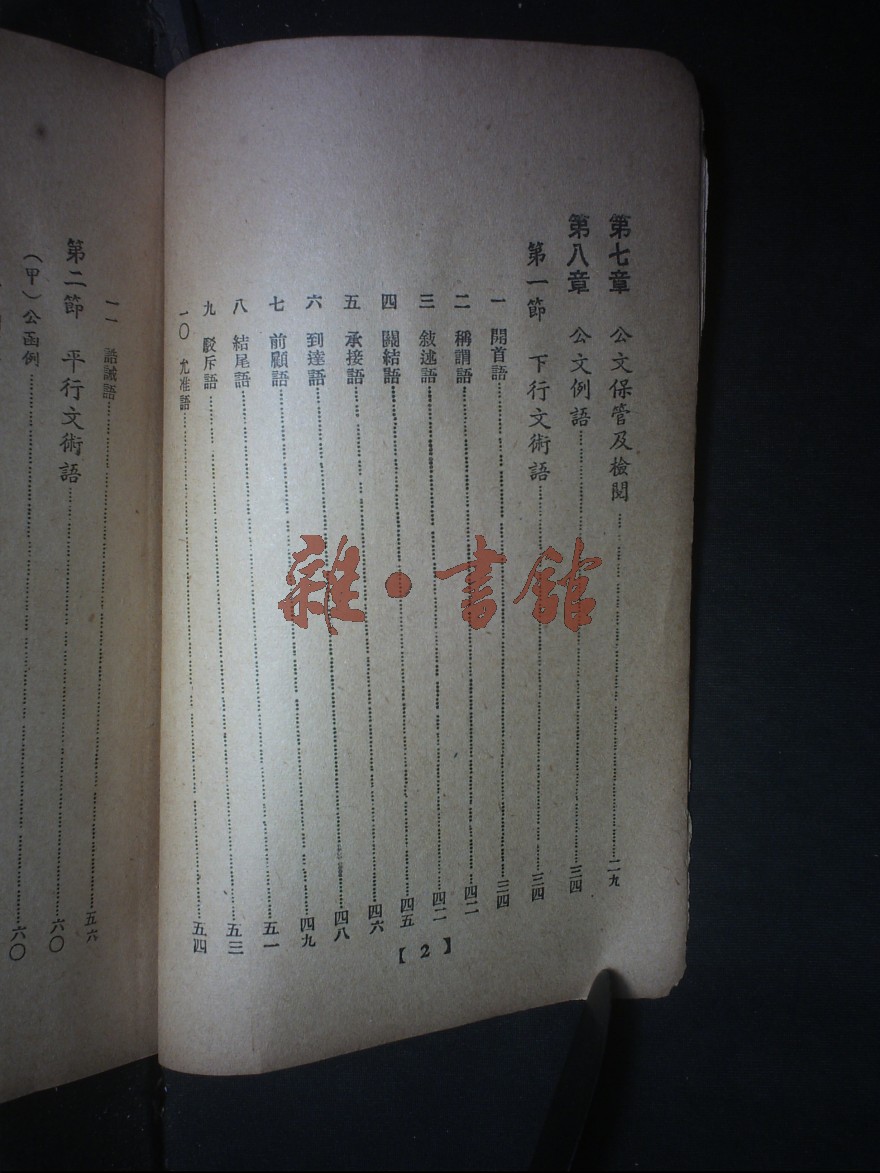 第七章　公文保管及檢閱……二九
第八章　公文例語……三四
第一節　下行文術語……三四
一　開首語……三四
二　稱謂語……四二
三　敍述語……四二
四　關結語……四五
五　承接語……四六
六　到達語……四八
七　前顧語……四九
八　結尾語……五一
九　駁斥語……五三
一〇　允准語……五四
【2】
一一　誥誡語……五六
第二節　平行文術語……六〇
（甲）公函例……六〇
雜·書館